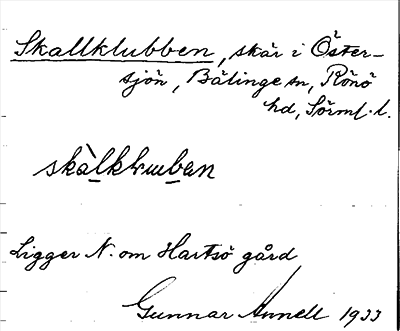 Skallklubben, skär i Öster-
sjön, Bälinge sn, Rönö
hd, Sörml. l.
skàlkḷuban
Ligger N. om Hartsö gård
Gunnar Annell 1933